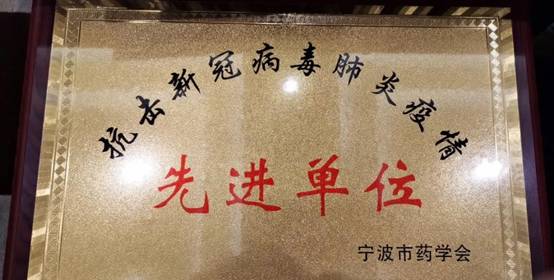 抗击新冠病毒肺炎疫情
先进单位
宁波市药学会